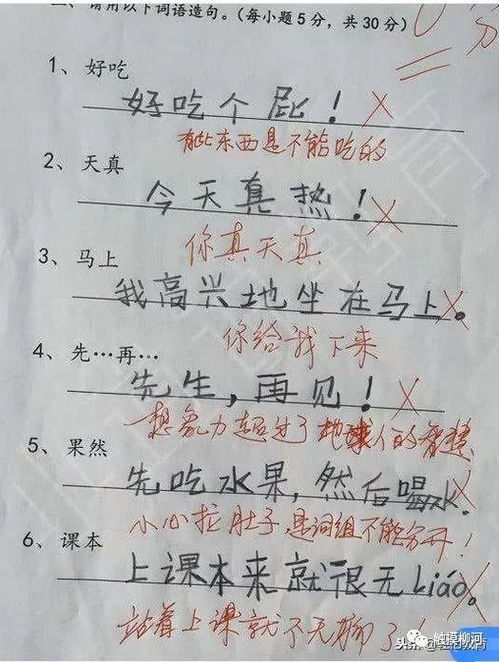 请用以下词语造句。(每小题5分，共30分)
0分
1、好吃
好吃个屁！ ×
有些东西是不能吃的
2、天真
今天真热！ ×
你真天真
3、马上
我高兴地坐在马上。 ×
你给我下来
4、先…再…
先生，再见！ ×
想象力超过了地球人的智慧
5、果然
先吃水果，然后喝水。 ×
小心拉肚子 是词组不能分开！
6、课本
上课本来就很无Liáo。 ×
站着上课就不无聊了！
触摸柳河
头条